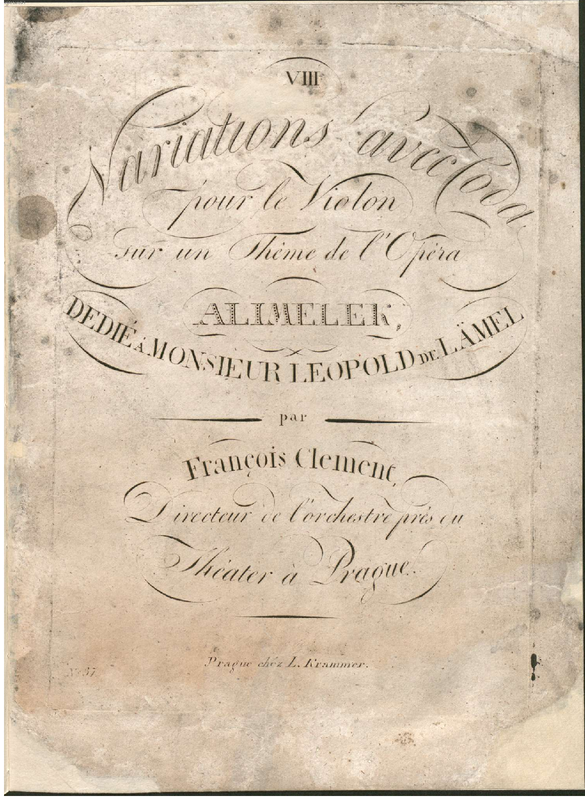 VIII
Variations avec Coda
pour le Violon
sur un Thême de l'Opéra
ALIMELEK,
DEDIÉ à MONSIEUR LEOPOLD DE LÄMEL
par
François Clement,
Directeur de l'orchestre près du
Théater à Prague.
Prague chéz L. Krammer.
No 57